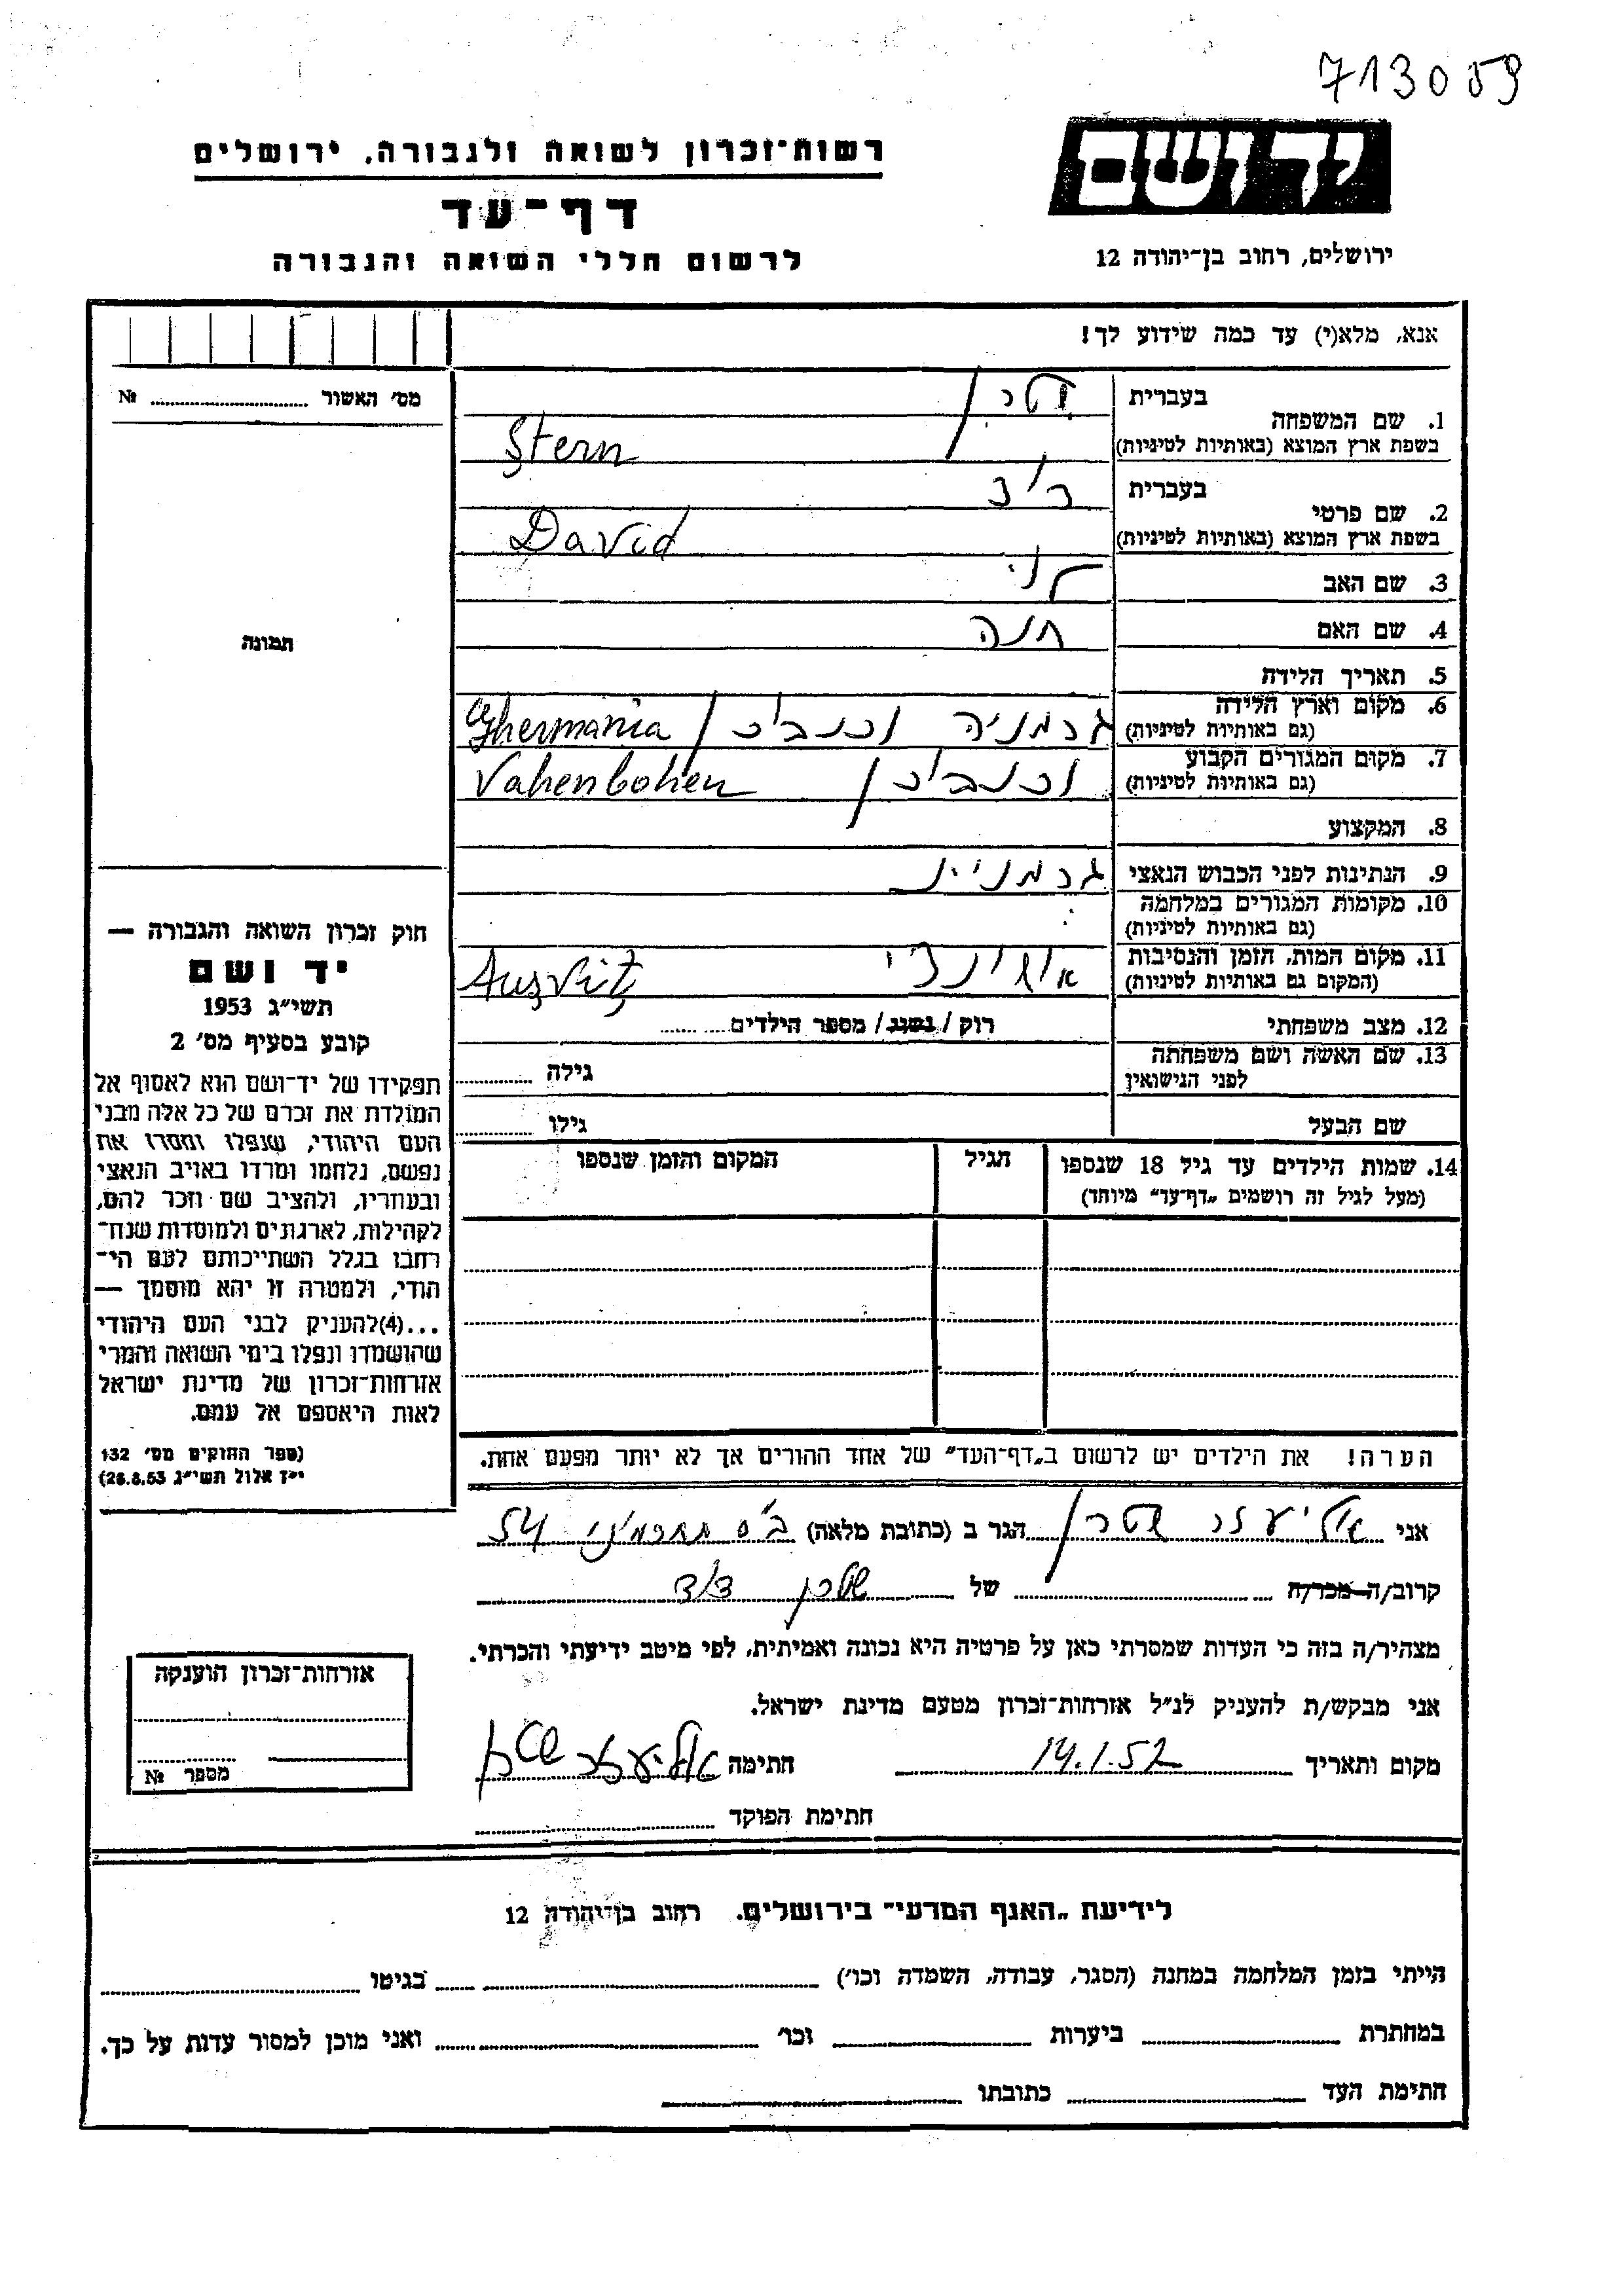 713059
יד ושם
רשות-זכרון לשואה ולגבורה, ירושלים
דף-עד
ירושלים, רחוב בן-יהודה 12
לרשום חללי השואה והגבורה
אנא, מלא(י) עד כמה שידוע לך!
מס׳ האשור ........ №
תמונה
1. שם המשפחה
בעברית שטרן
בשפת ארץ המוצא (באותיות לטיניות) Stern
2. שם פרטי
בעברית דוד
בשפת ארץ המוצא (באותיות לטיניות) David
3. שם האב לוי
4. שם האם חנה
5. תאריך הלידה
6. מקום וארץ הלידה
(גם באותיות לטיניות) גרמניה וכנביכן Ghermania
7. מקום המגורים הקבוע
(גם באותיות לטיניות) וכנביכן Vahenbohen
8. המקצוע
9. הנתינות לפני הכבוש הנאצי גרמניינ
10. מקומות המגורים במלחמה
(גם באותיות לטיניות)
11. מקום המות, הזמן והנסיבות
(המקום גם באותיות לטיניות) Ausvitz
12. מצב משפחתי רוק / נשוי / מספר הילדים ........
13. שם האשה ושם משפחתה
לפני הנישואין גילה ........
שם הבעל גילו ........
14. שמות הילדים עד גיל 18 שנספו הגיל המקום והזמן שנספו
(מעל לגיל זה רושמים „דף-עד״ מיוחד)
הערה! את הילדים יש לרשום ב„דף-העד״ של אחד ההורים אך לא יותר מפעם אחת.
חוק זכרון השואה והגבורה —
יד ושם
תשי״ג 1953
קובע בסעיף מס׳ 2
תפקידו של יד-ושם הוא לאסוף אל
המולדת את זכרם של כל אלה מבני
העם היהודי, שנפלו ומסרו את
נפשם, נלחמו ומרדו באויב הנאצי
ובעוזריו, ולהציב שם וזכר להם,
לקהילות, לארגונים ולמוסדות שנח-
רבו בגלל השתייכותם לעם הי-
הודי, ולמטרה זו יהא מוסמך —
...(4)להעניק לבני העם היהודי
שהושמדו ונפלו בימי השואה והמרי
אזרחות-זכרון של מדינת ישראל
לאות היאספם אל עמם.
(ספר החוקים מס׳ 132
י״ז אלול תשי״ג 28.8.53)
אני אליעזר שטרן הגר ב (כתובת מלאה) 54
קרוב/ה מכר/ה ........ של שטרן דוד
מצהיר/ה בזה כי העדות שמסרתי כאן על פרטיה היא נכונה ואמיתית, לפי מיטב ידיעתי והכרתי.
אני מבקש/ת להעניק לנ״ל אזרחות-זכרון מטעם מדינת ישראל.
מקום ותאריך 14.1.57 חתימה אליעזר שטרן
חתימת הפוקד ........
אזרחות-זכרון הוענקה
מספר №
לידיעת „האגף המדעי״ בירושלים. רחוב בן-יהודה 12
הייתי בזמן המלחמה במחנה (הסגר, עבודה, השמדה וכו׳) ........ בגיטו ........
במחתרת ........ ביערות ........ וכו׳ ........ ואני מוכן למסור עדות על כך.
חתימת העד ........ כתובתו ........